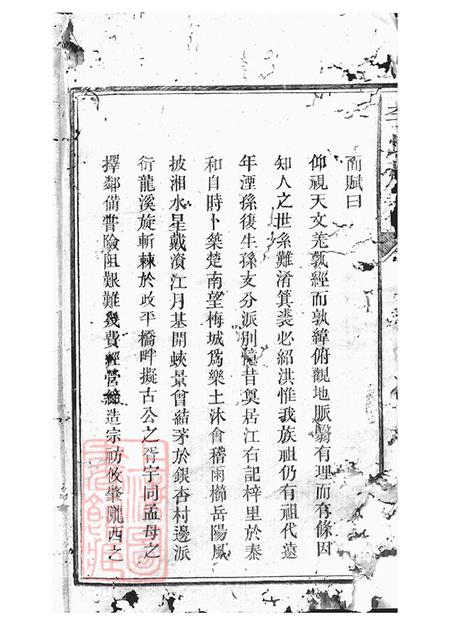 前賦曰
仰視天文羌孰經而孰緯俯觀地脈翳有理而有條因
知人之世系難淆箕裘必紹洪惟我族祖仍有祖代遠
年湮孫復生孫支分派別憶昔奠居江右記梓里於泰
和自時卜築楚南望梅城爲樂土沐會稽雨櫛岳陽風
披湘水星戴濱江月基開峽景曾結茅於銀杏村邊派
衍龍溪旋斬棘於政平橋畔擬古公之胥宇同孟母之
擇鄰備嘗險阻艱難幾費經營締造宗祊攸肇隴西之